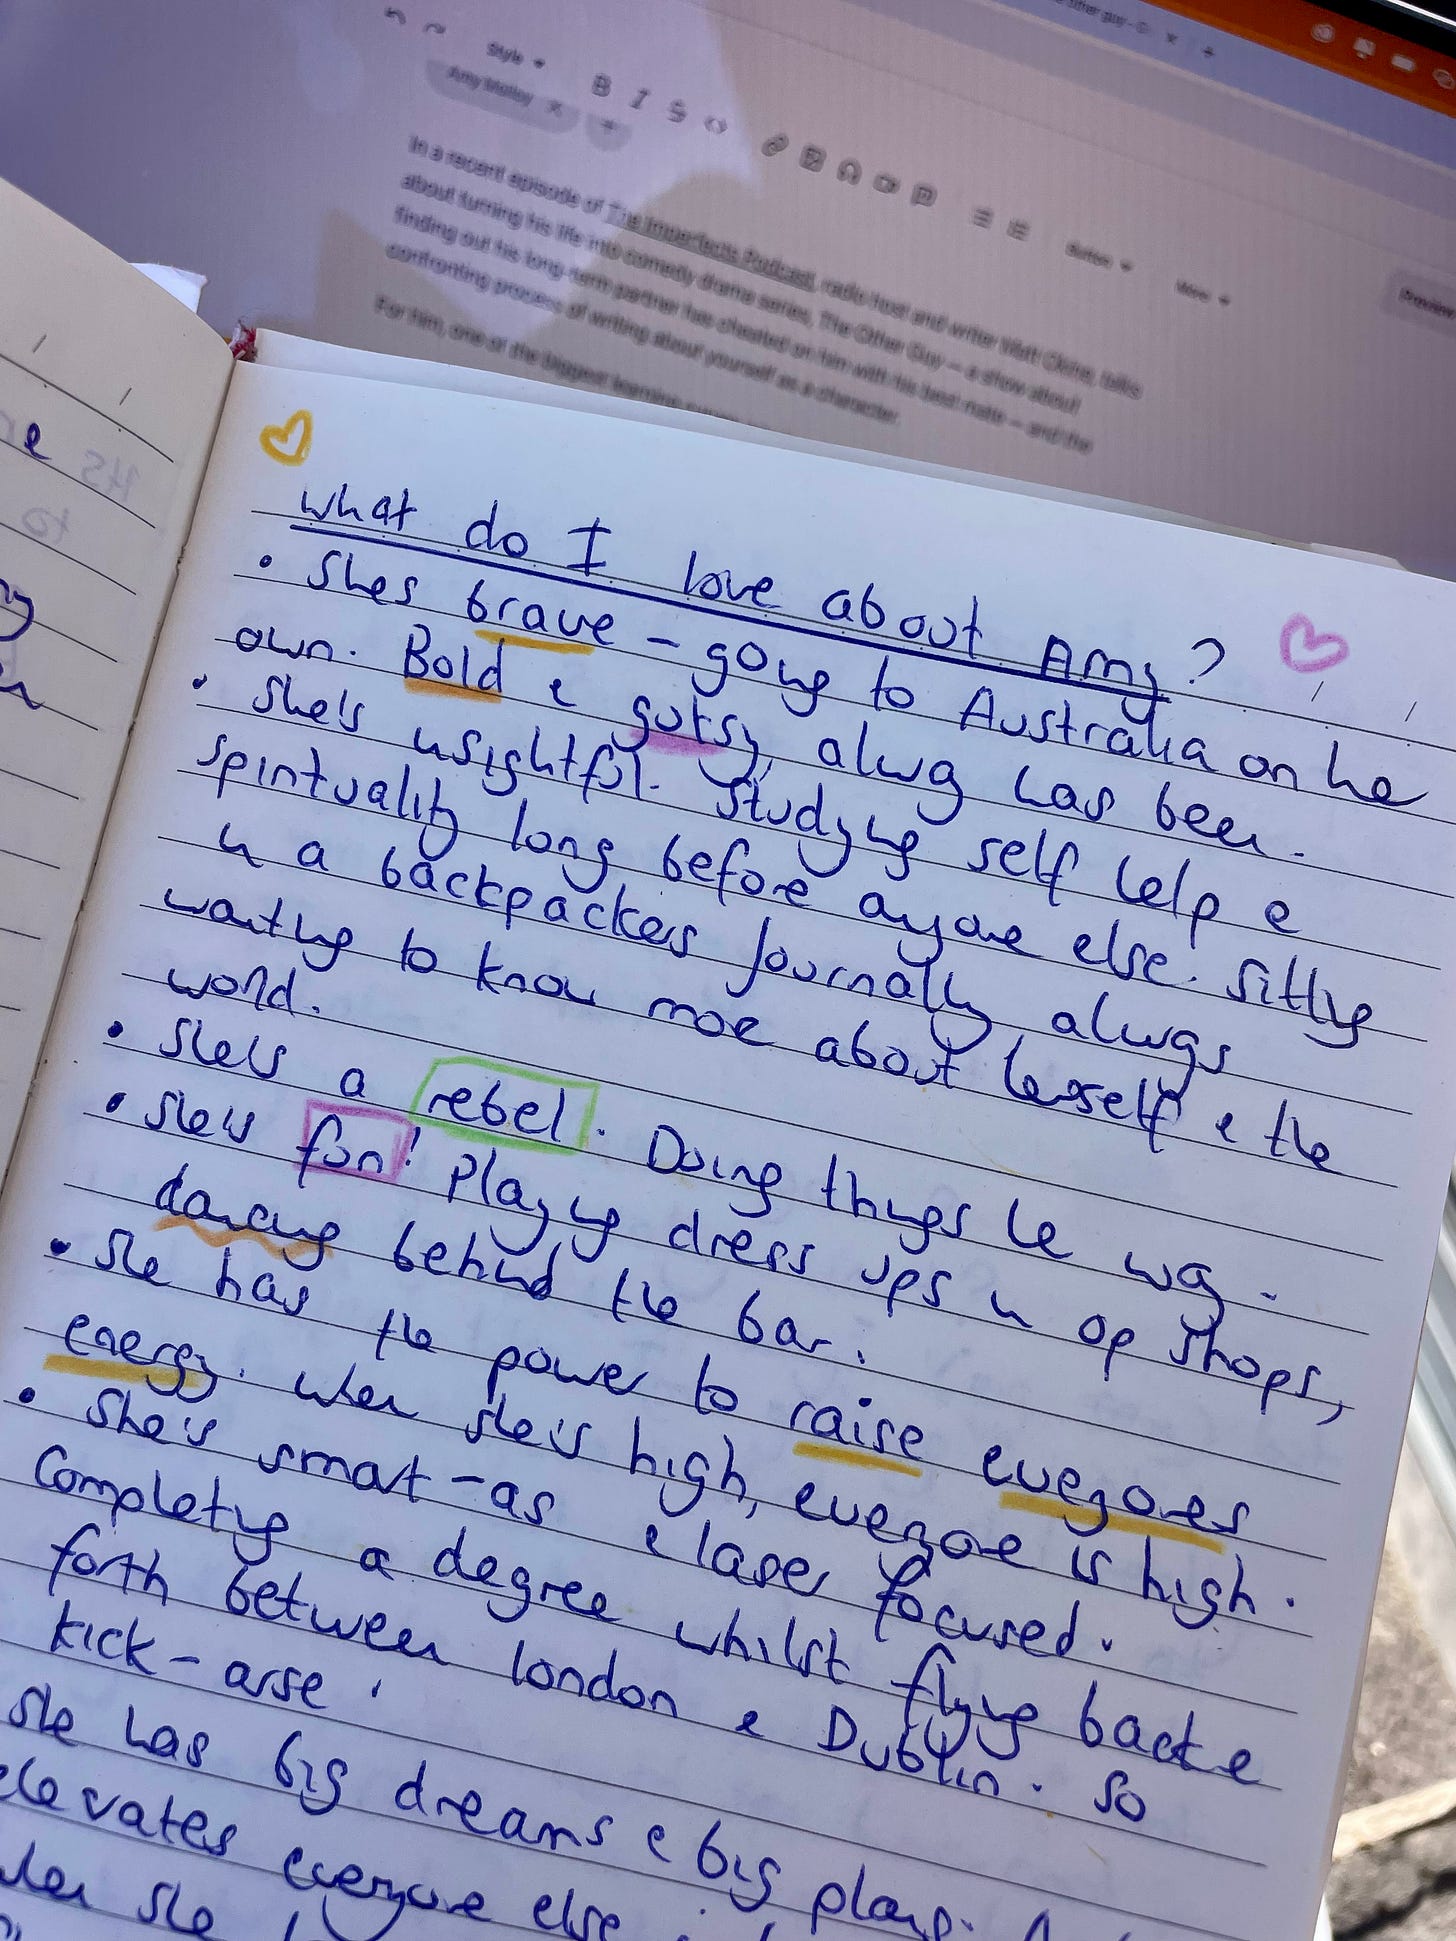 Style
B I S <>
Amy Molloy × +
Button
More
Preview
In a recent episode of The Imperfects Podcast, radio host and writer Matt Okine, talks
about turning his life into comedy drama series, The Other Guy – a show about
finding out his long-term partner has cheated on him with his best mate – and the
confronting process of writing about yourself as a character.
For him, one of the biggest learning
What do I love about Amy?
• Shes brave – going to Australia on he
own. Bold & gutsy, alway has been.
• She's insightful. Studying self help &
spirituality long before anyone else. Sitting
in a backpackers journally always
wanting to know more about herself & the
world.
• She's a rebel. Doing things he way.
• She's fun! Playing dress ups in op shops,
dancing behind the bar.
• She has the power to raise everyones
energy. When she's high, everyone is high.
• She's smart – as & laser focused.
Completing a degree whilst flying back &
forth between London & Dublin. So
kick-arse!
She has big dreams & big plans.
elevates everyone else
when she